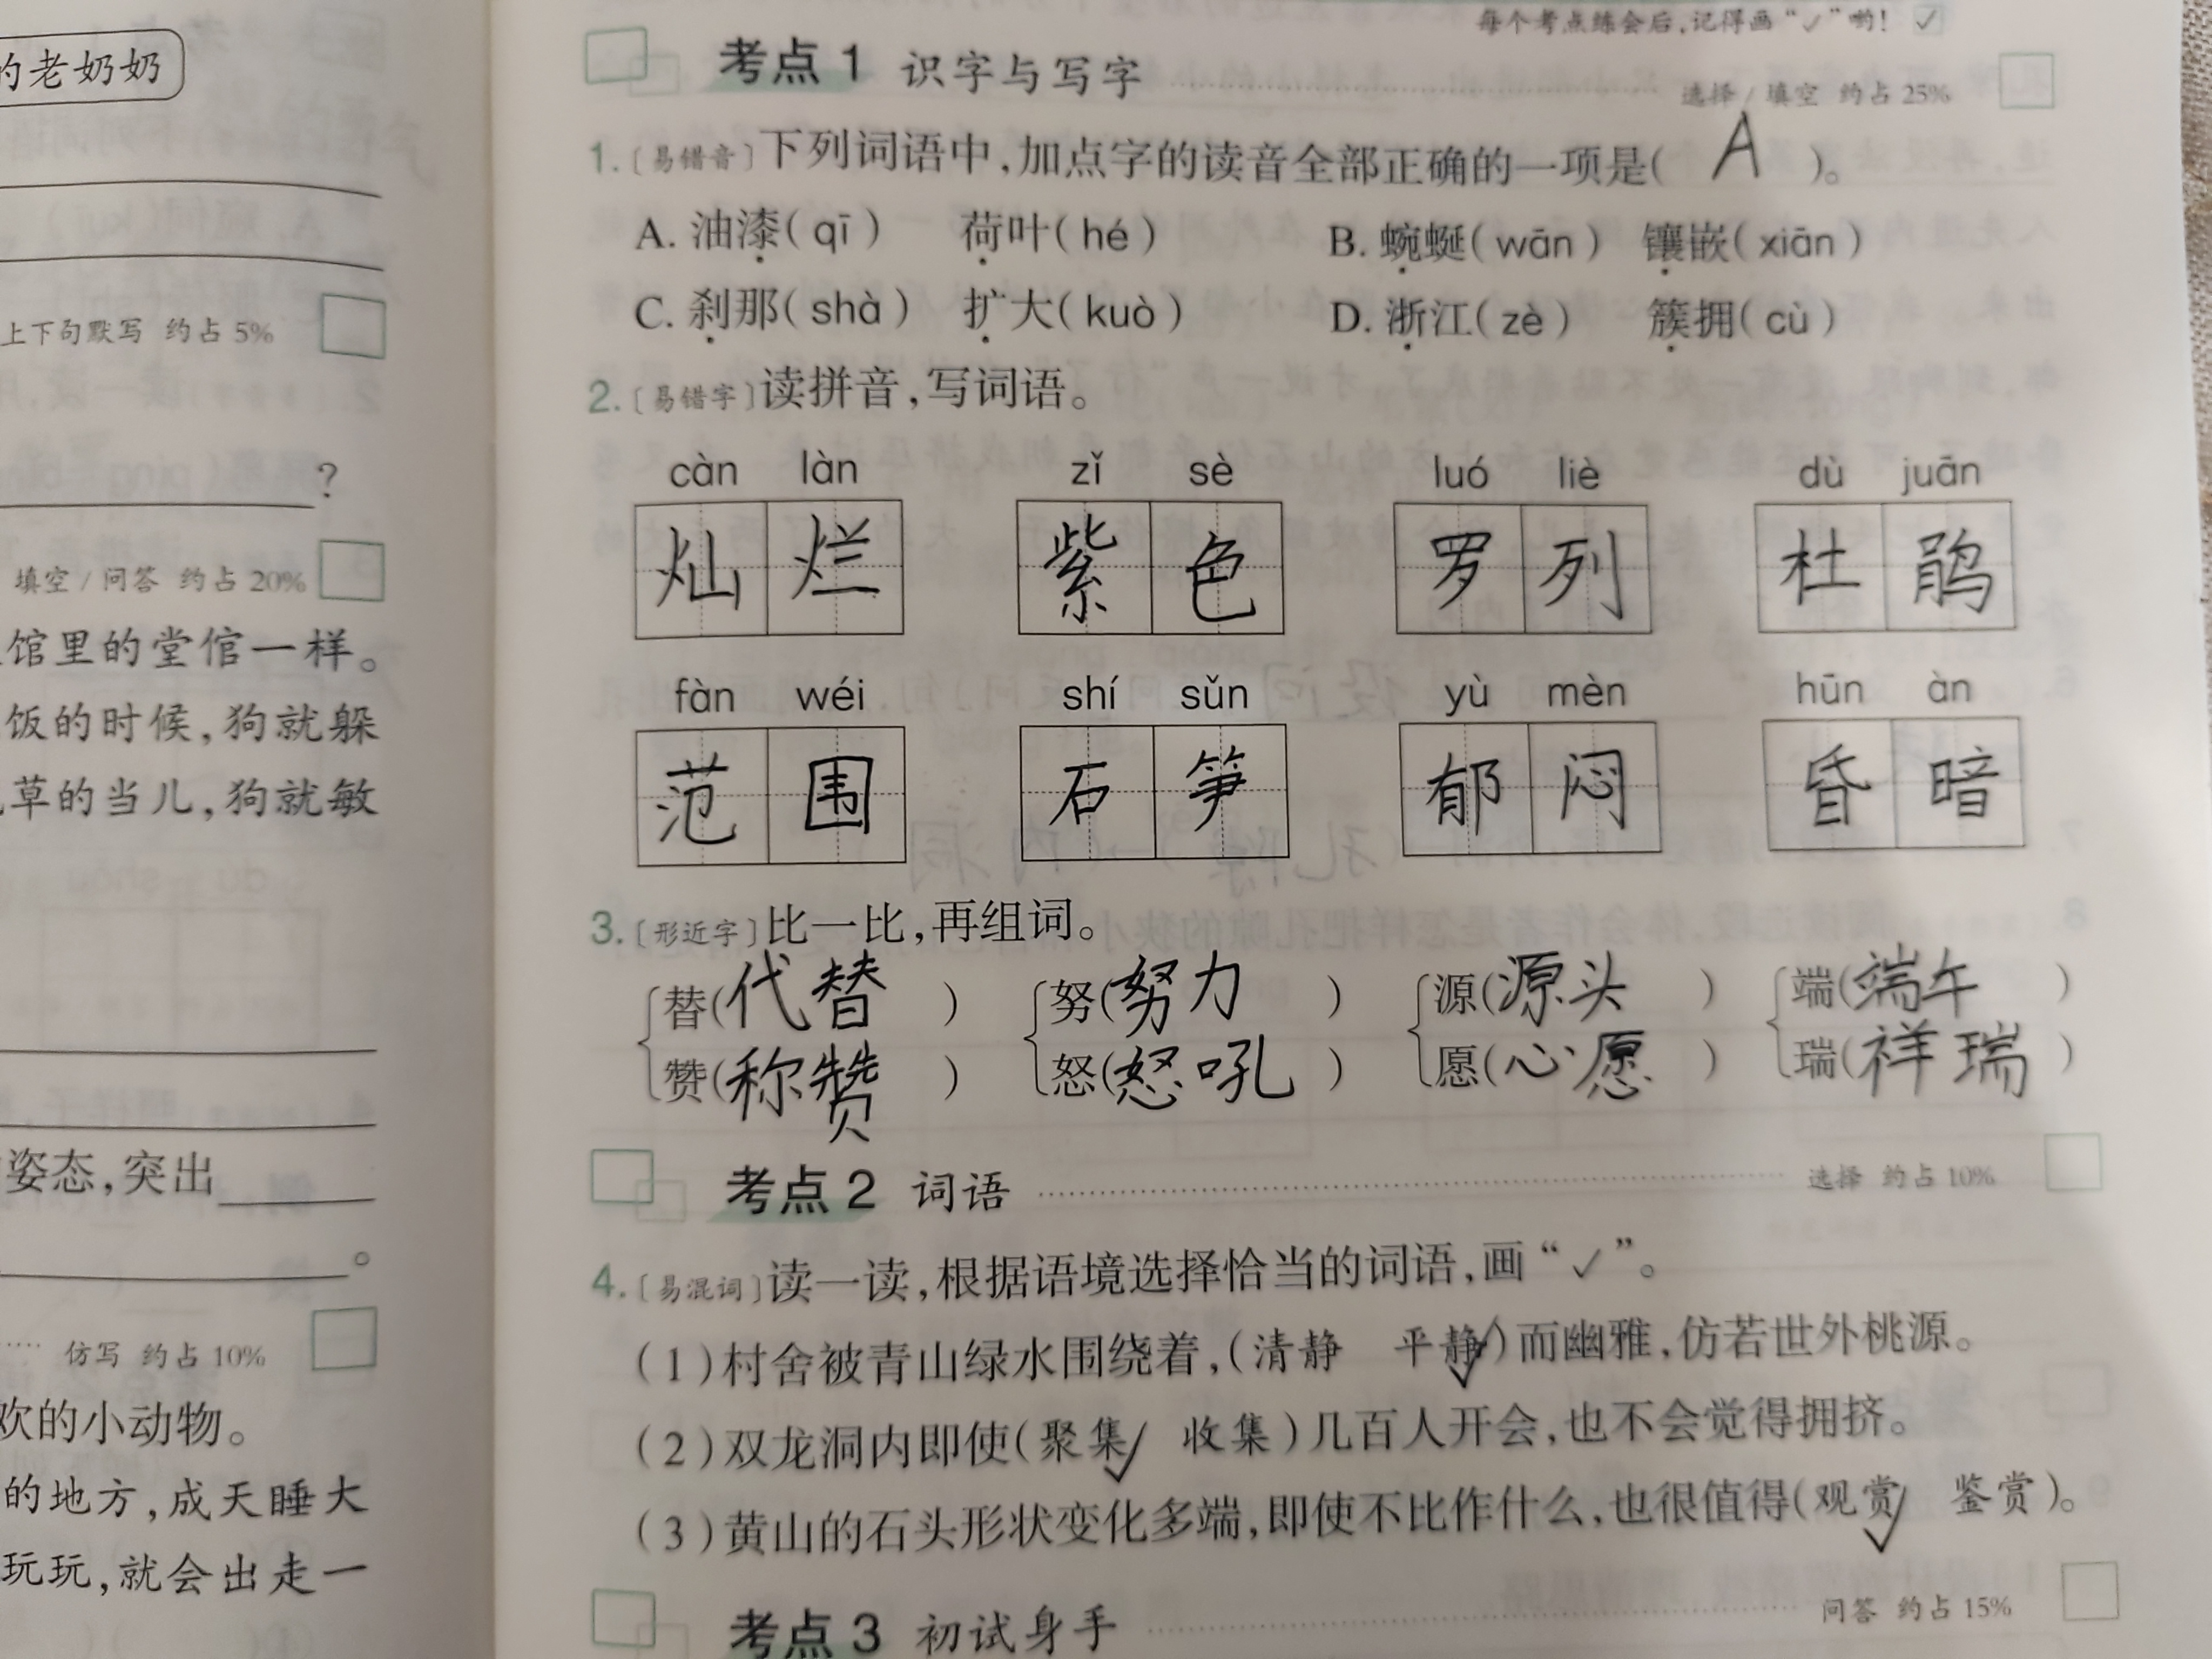 的老奶奶
上下句默写 约占5%
?
填空/问答 约占20%
馆里的堂倌一样。
饭的时候,狗就躲
草的当儿,狗就敏
姿态,突出
。
仿写 约占10%
欢的小动物。
的地方,成天睡大
玩玩,就会出走一
每个考点练会后,记得画“✓”哟! ✓
考点1 识字与写字
选择/填空 约占25%
1.〔易错音〕下列词语中,加点字的读音全部正确的一项是( A )。
A. 油漆(qī) 荷叶(hé) B. 蜿蜒(wān) 镶嵌(xiān)
C. 刹那(shà) 扩大(kuò) D. 浙江(zè) 簇拥(cù)
2.〔易错字〕读拼音,写词语。
càn làn zǐ sè luó liè dù juān
灿烂 紫色 罗列 杜鹃
fàn wéi shí sǔn yù mèn hūn àn
范围 石笋 郁闷 昏暗
3.〔形近字〕比一比,再组词。
替(代替) 努(努力) 源(源头) 端(端午)
赞(称赞) 怒(怒吼) 愿(心愿) 瑞(祥瑞)
考点2 词语 选择 约占10%
4.〔易混词〕读一读,根据语境选择恰当的词语,画“✓”。
(1)村舍被青山绿水围绕着,(清静 平静✓)而幽雅,仿若世外桃源。
(2)双龙洞内即使(聚集✓ 收集)几百人开会,也不会觉得拥挤。
(3)黄山的石头形状变化多端,即使不比作什么,也很值得(观赏✓ 鉴赏)。
考点3 初试身手 问答 约占15%